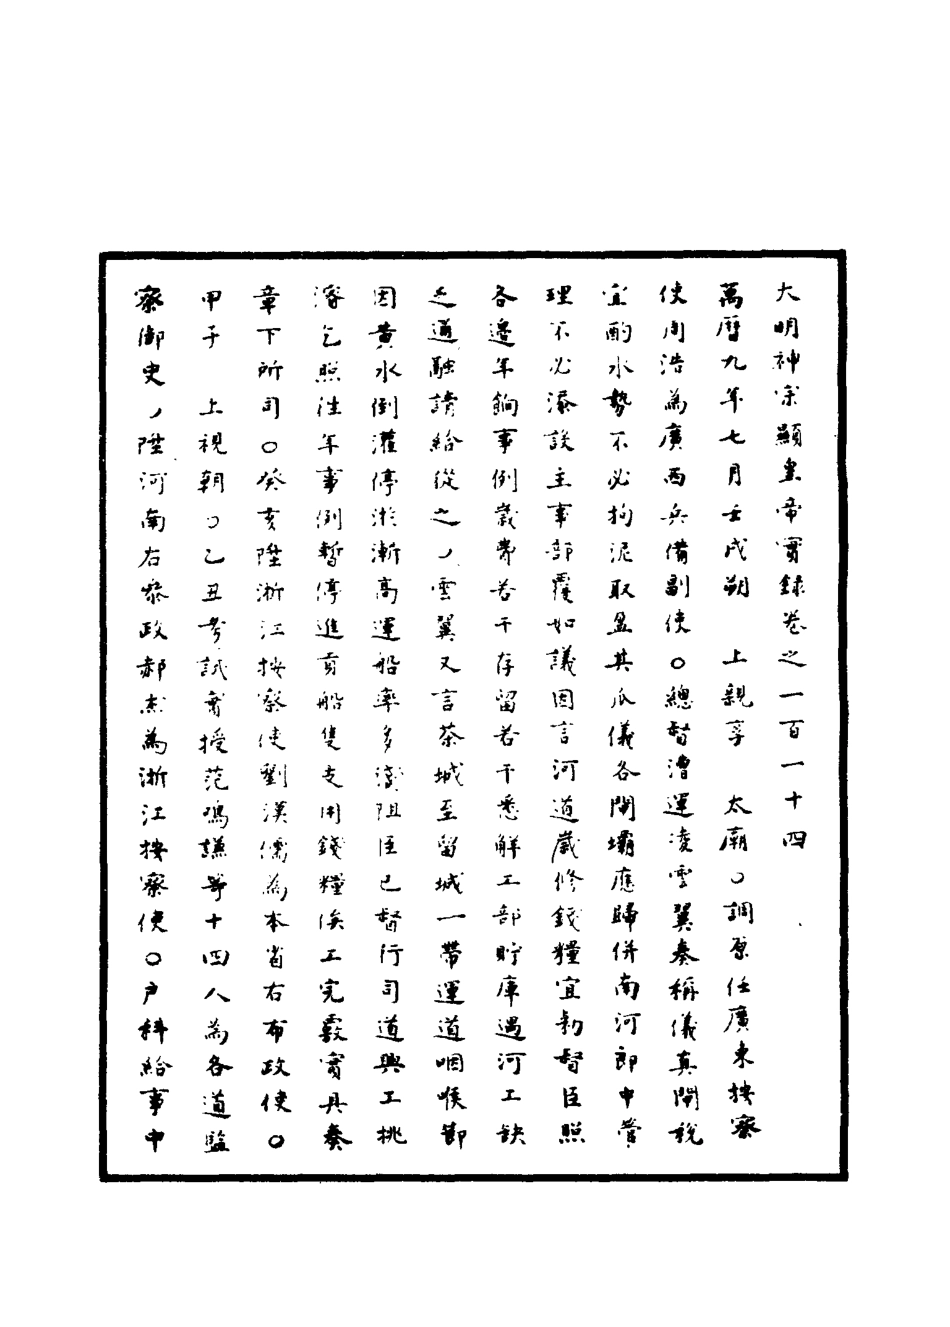 大明神宗顯皇帝實錄卷之一百一十四
萬曆九年七月壬戌朔　上親享　太廟○調原任廣東按察
使周浩為廣西兵備副使○總督漕運凌雲翼奏稱儀真閘稅
宜酌水勢不必拘泥取盈其瓜儀各閘壩應歸併南河郎中管
理不必添設主事部覆如議因言河道歲修錢糧宜勑督臣照
各邊年餉事例歲帑若干存留若干悉解工部貯庫遇河工缺
乏通融請給從之○雲翼又言茶城至留城一帶運道咽喉節
因黃水倒灌停淤漸高運船率多淺阻臣已督行司道興工挑
濬乞照往年事例暫停進貢船隻支用錢糧俟工完覈實具奏
章下所司○癸亥陞浙江按察使劉漢儒為本省右布政使○
甲子　上視朝○乙丑考試實授范鳴謙等十四人為各道監
察御史○陞河南右參政郝杰為浙江按察使○戶科給事中